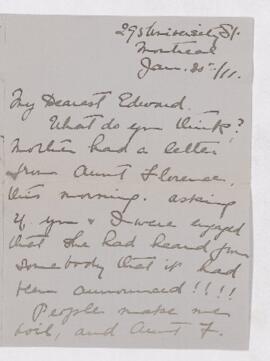 293 University St.
Montreal
Jan. 20th/11.
My Dearest Edward.
What do you think?
Mother had a letter
from Aunt Florence,
this morning. asking
if you & I were engaged
that she had heard from
somebody that it had
been announced!!!!
People make me
boil, and Aunt F.